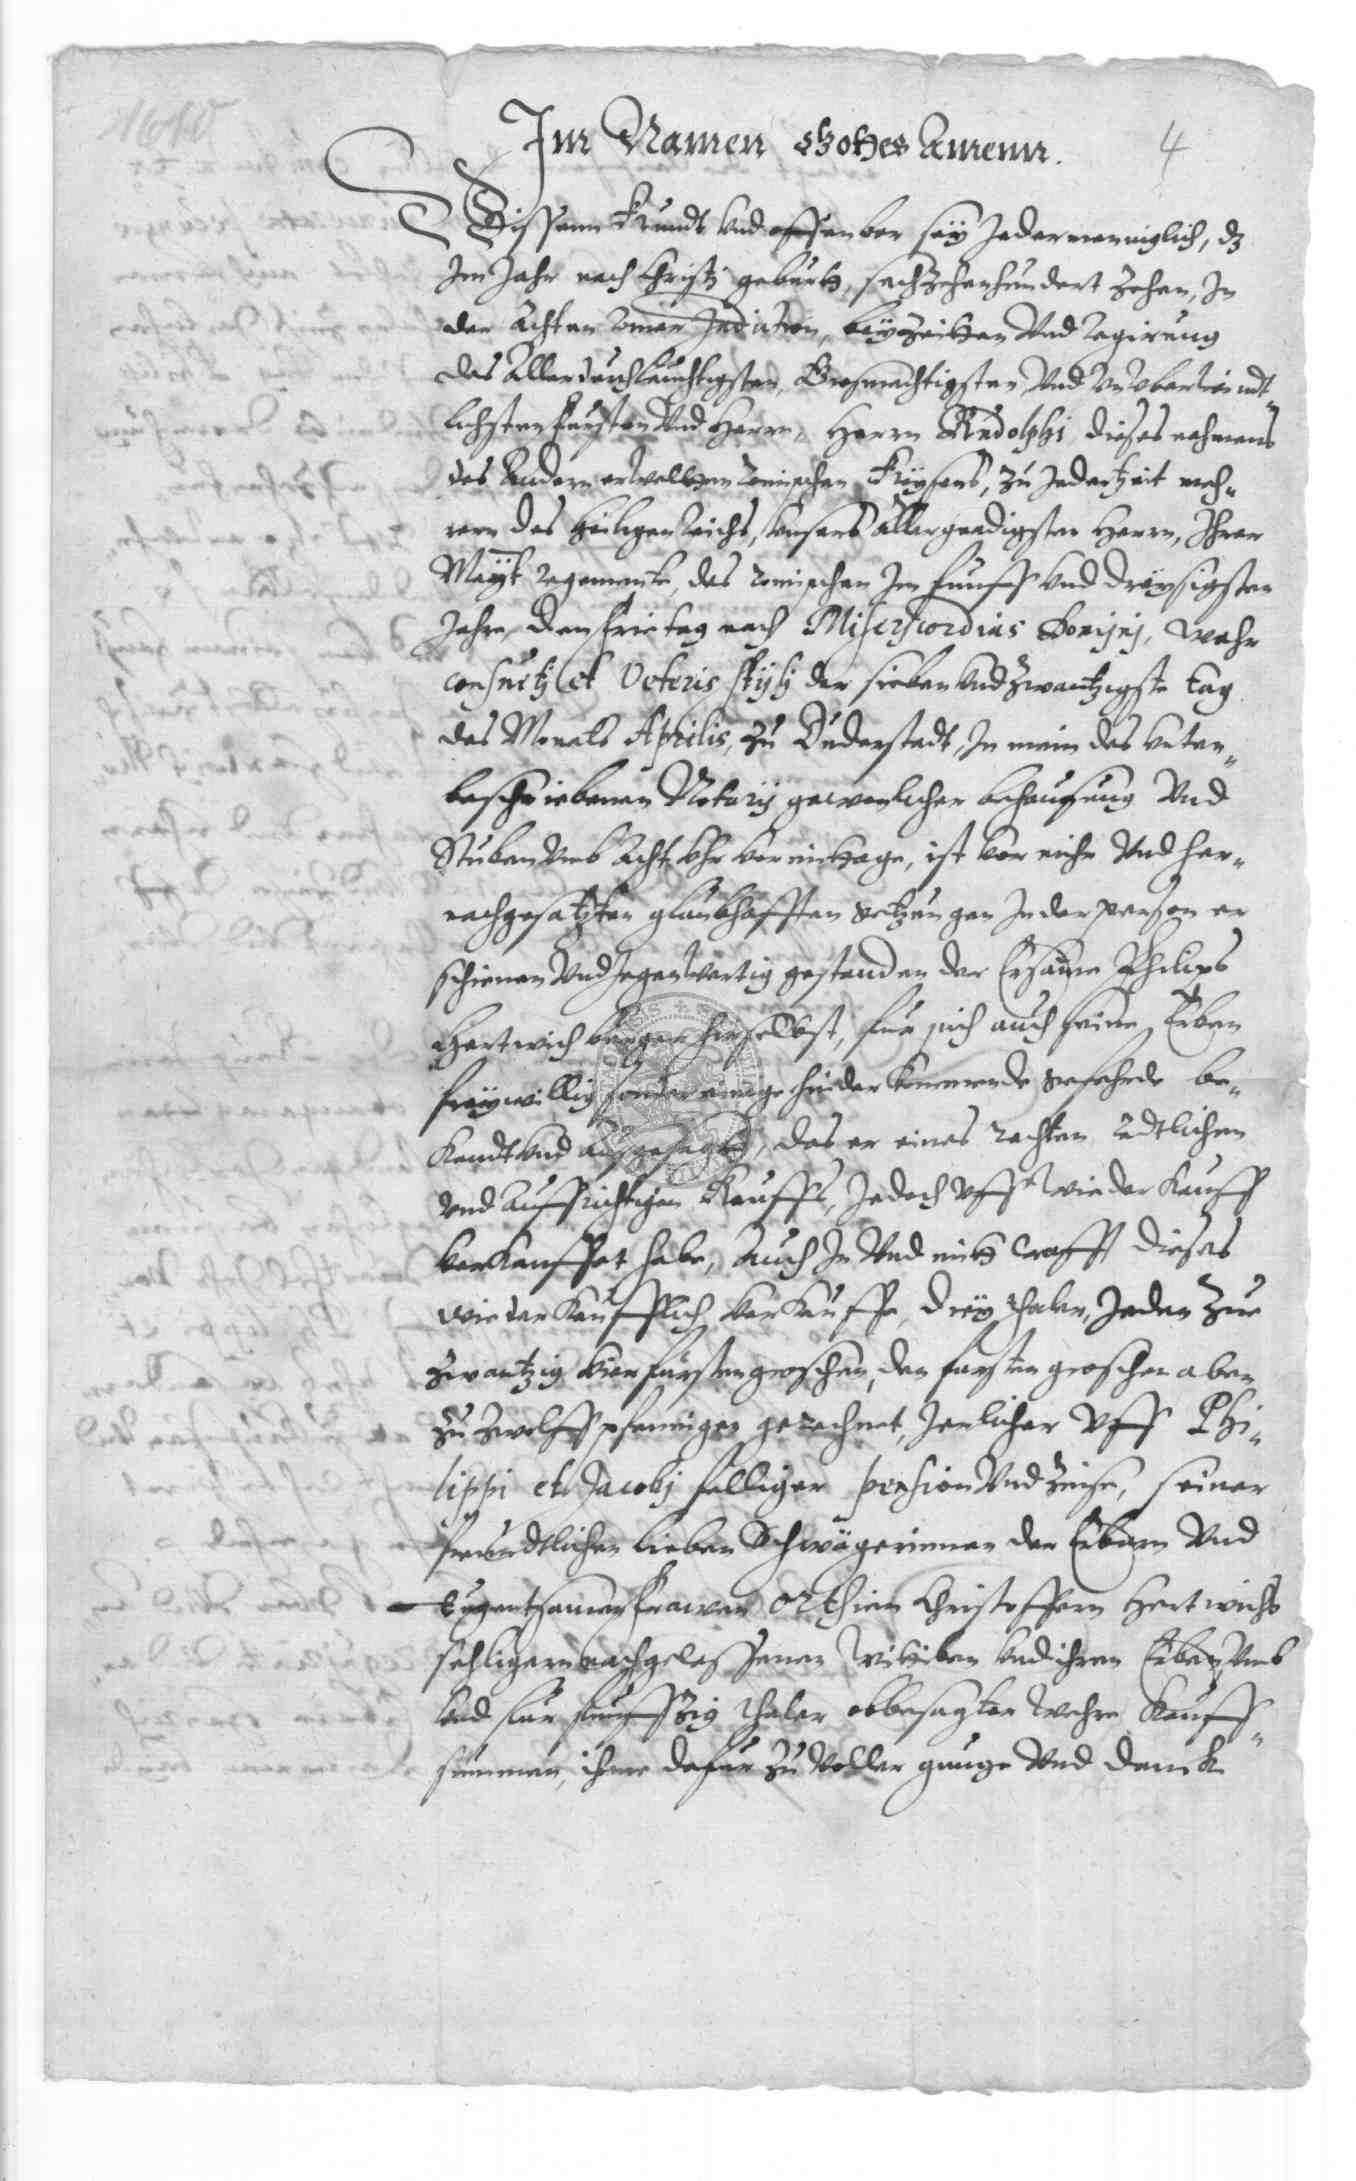 1610
4
Im Namen Gottes Amenn.
Wissenn kundt und offenbar seÿ Jedermenniglich, dz
Im Jahr nach Christi geburth, sechzehenhundert zehen, In
der Achten Romer Indiction, beÿ zeitten Und regirung
des Allerdurchleuchtigsten, Grosmechtigsten Und Unuberwindt¬
lichsten Fursten Und Herrn, Herrn Rudolphi dieses nahmens
des Andern erwelten Romischen Keÿsers, zu Jederzeit meh¬
rern des Heiligen Reichs, Unsers Allergnedigsten Herrn, Ihrer
Maÿt regements, des romischen Im funff und dreÿsigsten
Jahre, den freitag nach Misericordias Dominj, wahr
consuetj et Veteris stÿlj der sieben Und zwantzigste tag
des Monats Aprilis, zu Duderstadt, In mein des unten¬
beschriebenen Notarij gewonlicher behausung Und
Stuben umb Acht Uhr vormittage, ist vor mihr Und her¬
nachgesatzten glaubhafften getzeugen In der person er
schienen Und Jegenwertig gestanden der Ersame Philips
Hartwich burger hieselbst, fur sich auch seine Erben
freÿwillig sonder einige hinderkommende gefehrde be¬
kandt Und ausgesagt, das er eines rechten redtlichen
Und Auffrichtigen Kauffs, Jedoch Uff wiederkauff
verkauffet habe, Auch In Und mith crafft dieses
wiederkaufflich verkauffe, dreÿ thaler, Jeden zue
zwantzig vier furstengroschen, den fursten groschen aber
zu zwolff pfennigen gerechnet, Jerlicher Uff Phi¬
lippi et Jacobj felliger pension Und Zinse, seiner
freundtlichen lieben Schwägerinnen der Erbarn Und
tugentsamen frawen Orthien Christoffern Hartwichs
sehligern nachgelassener Wittiben und ihren Erben, umb
und fur funffzig thaler obbesagter wehre Kauff¬
summen, ihme dafur zu voller gnuge Und danck